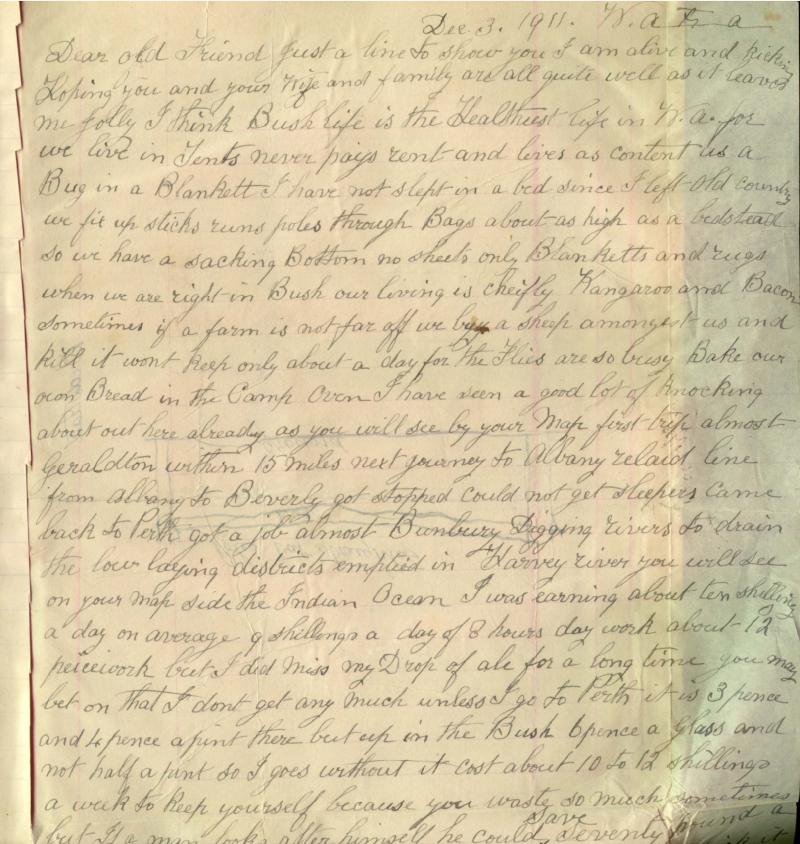 Dec. 3. 1911. W. a
Dear old Friend Just a line to show you I am alive and kicking
Hoping you and your Wife and family are all quite well as it leaves
me Jolly I think Bush life is the Healthiest life in W. A. for
we live in Tents never pays rent and lives as content as a
Bug in a Blankett I have not slept in a bed since I left old country
we fix up sticks runs poles through Bags about as high as a bedstead
so we have a sacking Bottom no sheets only Blanketts and rugs
when we are right in Bush our living is cheifly Kangaroo and Bacon
sometimes if a farm is not far off we buy a sheep amongest us and
kill it wont keep only about a day for the Flies are so busy Bake our
own Bread in the Camp Oven I have seen a good lot of knocking
about out here already as you will see by your Map first trip almost
Geraldton within 15 miles next journey to Albany relaid line
from Albany to Beverly got stopped could not get sleepers came
back to Perth got a job almost Bunbury Digging rivers to drain
the low laying districts emptied in Harvey river you will see
on your map side the Indian Ocean I was earning about ten shillings
a day on average 9 shillings a day of 8 hours day work about 12
peicework but I did miss my Drop of ale for a long time you may
bet on that I dont get any much unless I go to Perth it is 3 pence
and 4 pence a pint there but up in the Bush 6 pence a Glass and
not half a pint so I goes without it cost about 10 to 12 shillings
a week to keep yourself because you waste so much sometimes
but If a man looks after himself he could save Seventy pound a